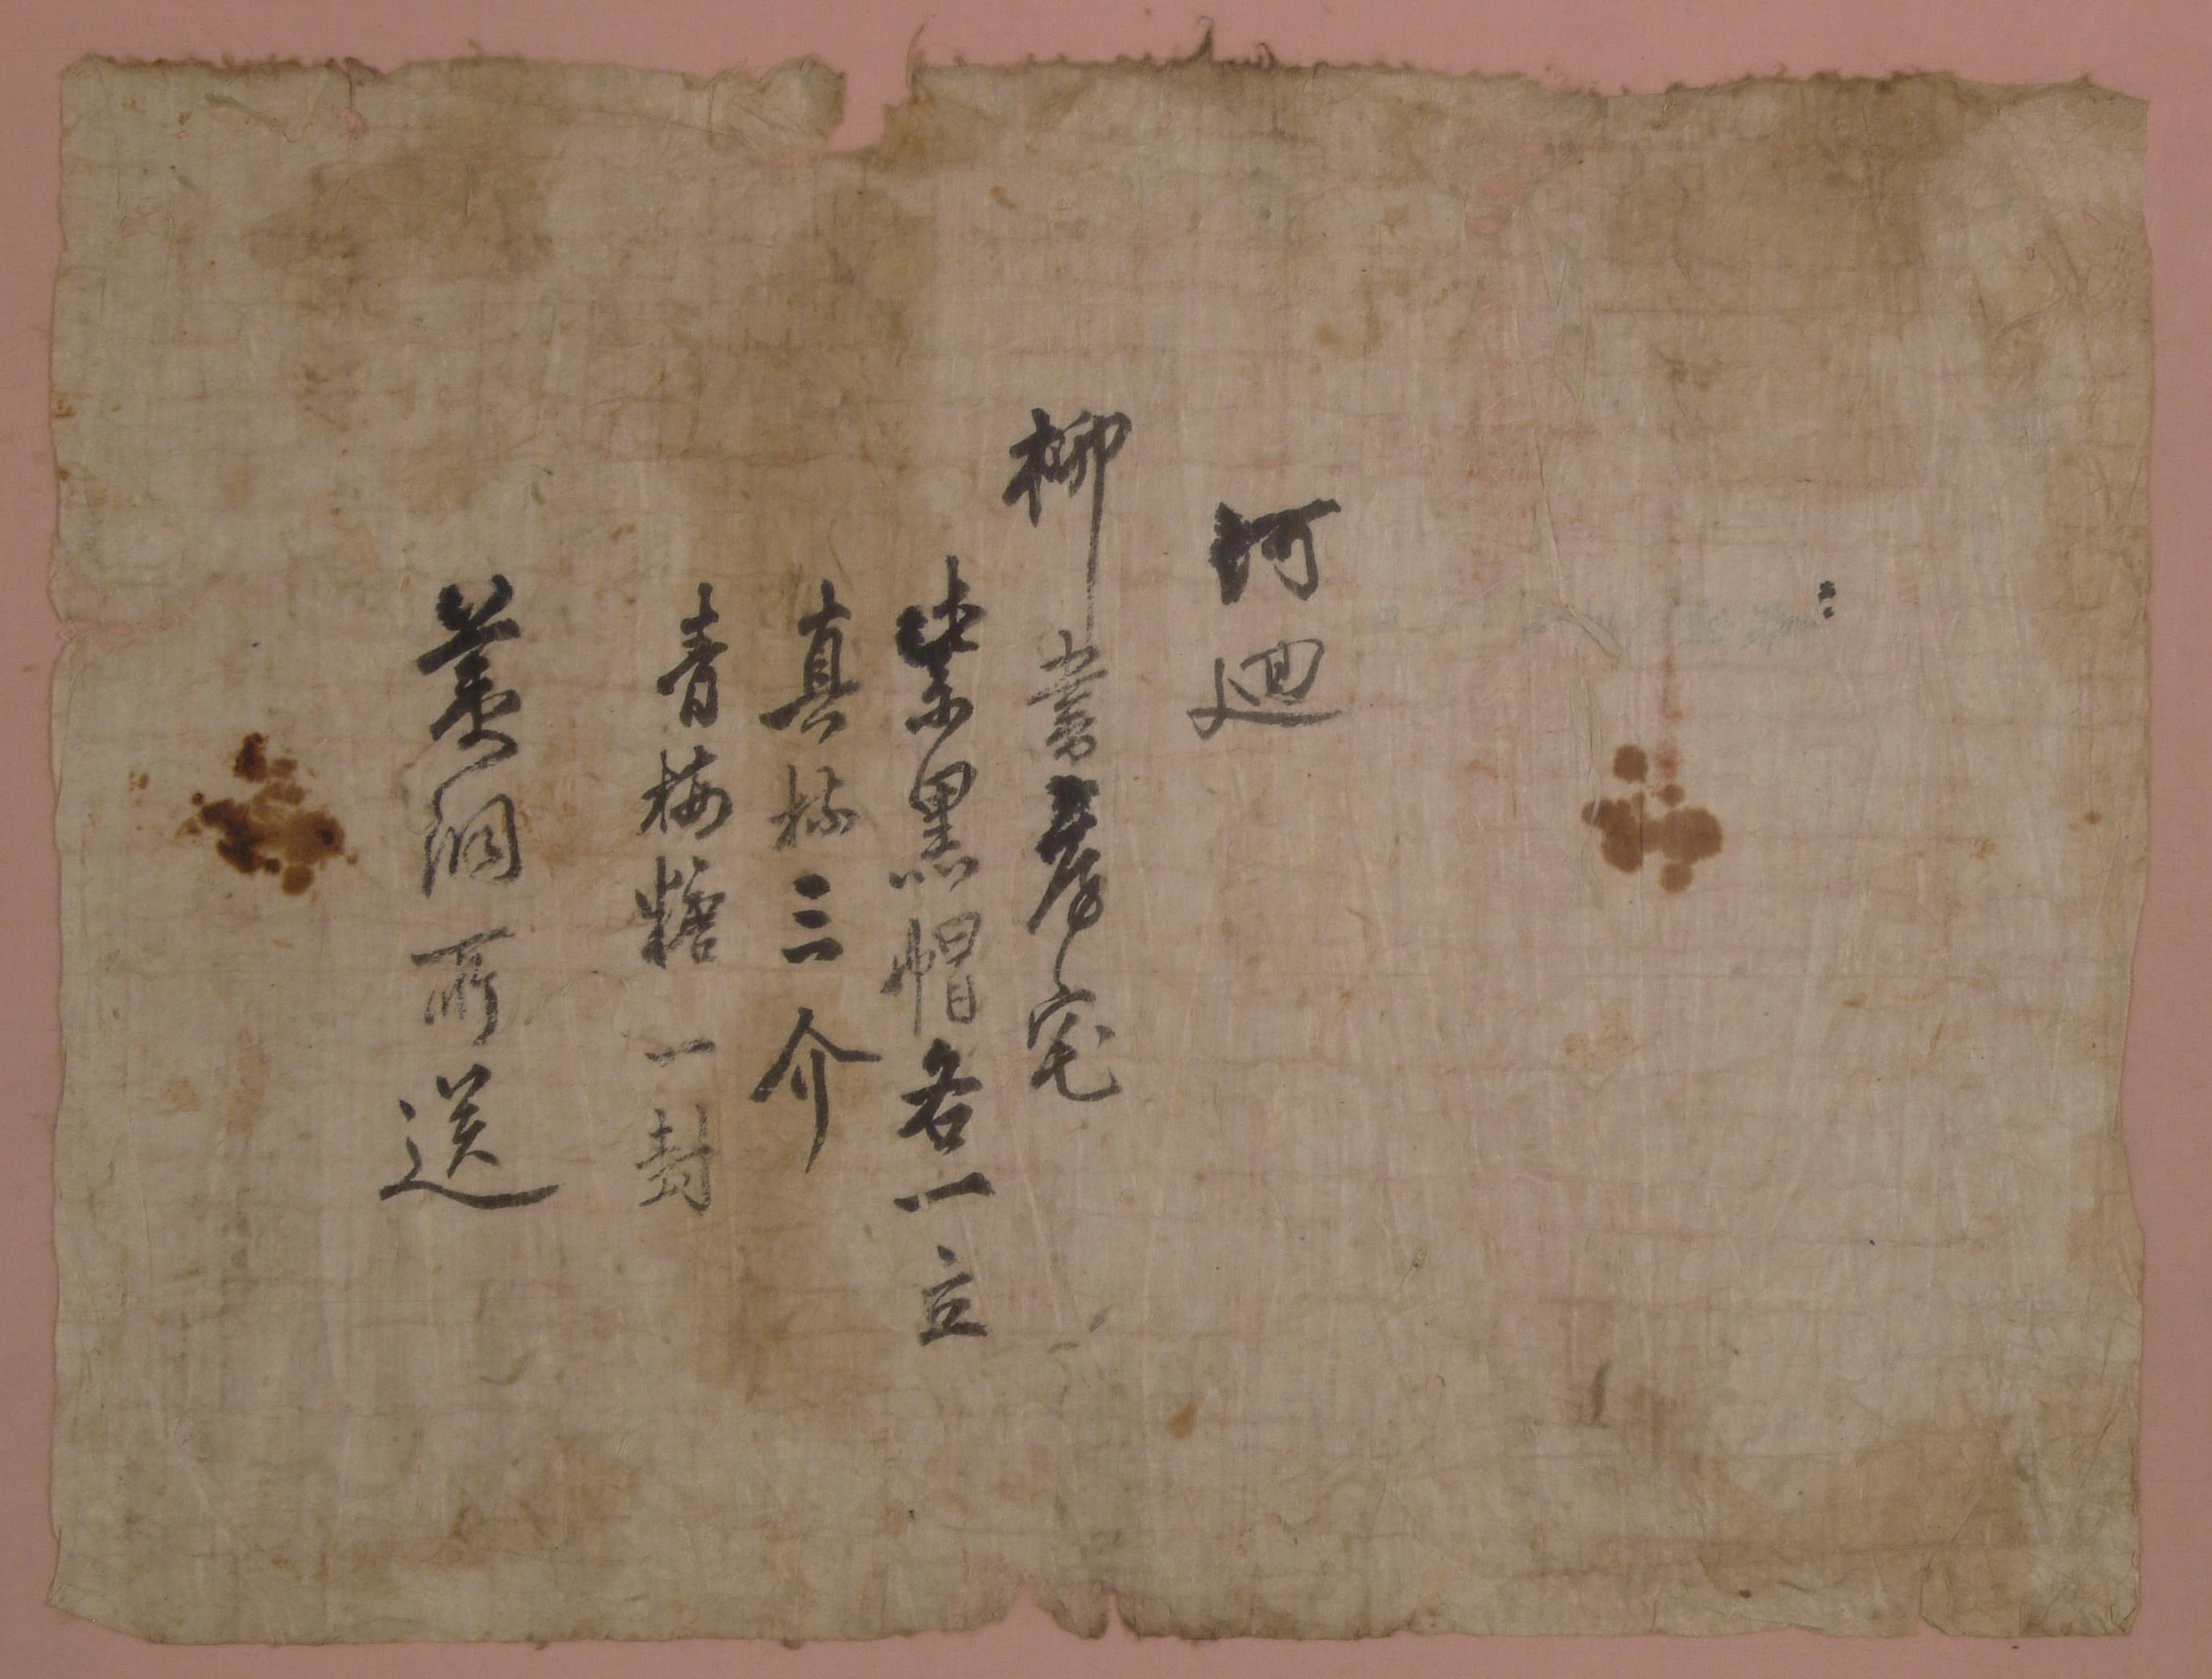 河迴
柳書房宅
紫黑帽各一立
真梳三介
青梅糖一封
美洞所送